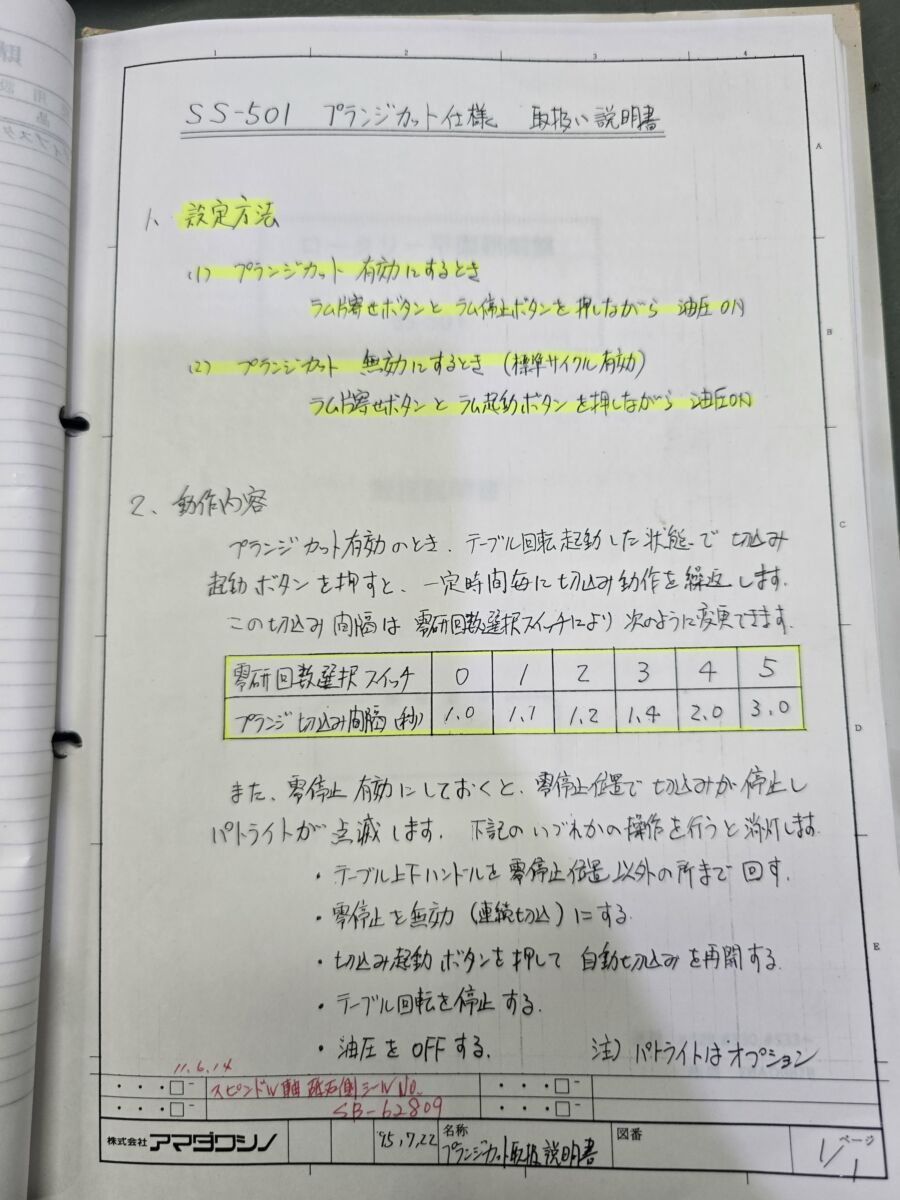 1 2 3 4
SS-501 プランジカット仕様 取扱い説明書
A
1、設定方法
(1) プランジカット 有効にするとき
ラム片寄せボタンと ラム停止ボタンを 押しながら 油圧ON
B
(2) プランジカット 無効にするとき (標準サイクル有効)
ラム片寄せボタンと ラム起動ボタンを押しながら 油圧ON
2、動作内容
C
プランジカット有効のとき、テーブル回転起動した状態で切込み
起動ボタンを押すと、一定時間毎に切込み動作を繰返します。
この切込み間隔は 零研回数選択スイッチにより 次のように変更できます。
零研回数選択スイッチ 0 1 2 3 4 5
プランジ切込み間隔(秒) 1.0 1.1 1.2 1.4 2.0 3.0
D
また、零停止有効にしておくと、零停止位置で切込みが停止し
パトライトが点滅します。下記のいづれかの操作を行うと消灯します。
・テーブル上下ハンドルを零停止位置以外の所まで回す。
・零停止を無効(連続切込)にする。
E
・切込み起動ボタンを押して 自動切込みを再開する。
・テーブル回転を停止する。
・油圧をOFFする。 注)パトライトはオプション
11.6.14
スピンドル軸 砥石側シールNo.
SB-62809
株式会社アマダワシノ
'95.7.22
名称
プランジカット取扱説明書
図番
1/1 ページ